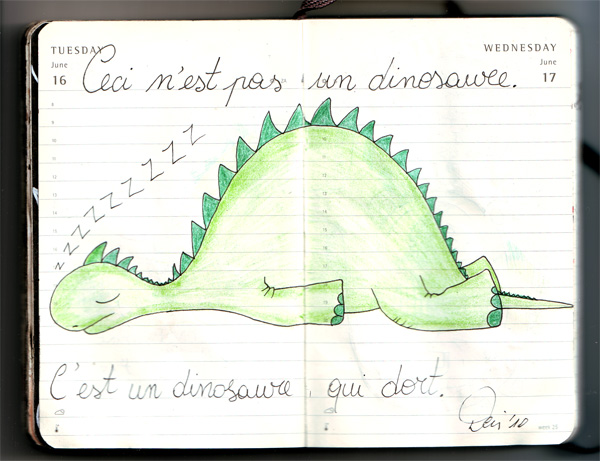 TUESDAY
June
16
WEDNESDAY
June
17
Ceci n'est pas un dinosaure.
zzzzzzzzzzz
C'est un dinosaure qui dort.
'10
week 25